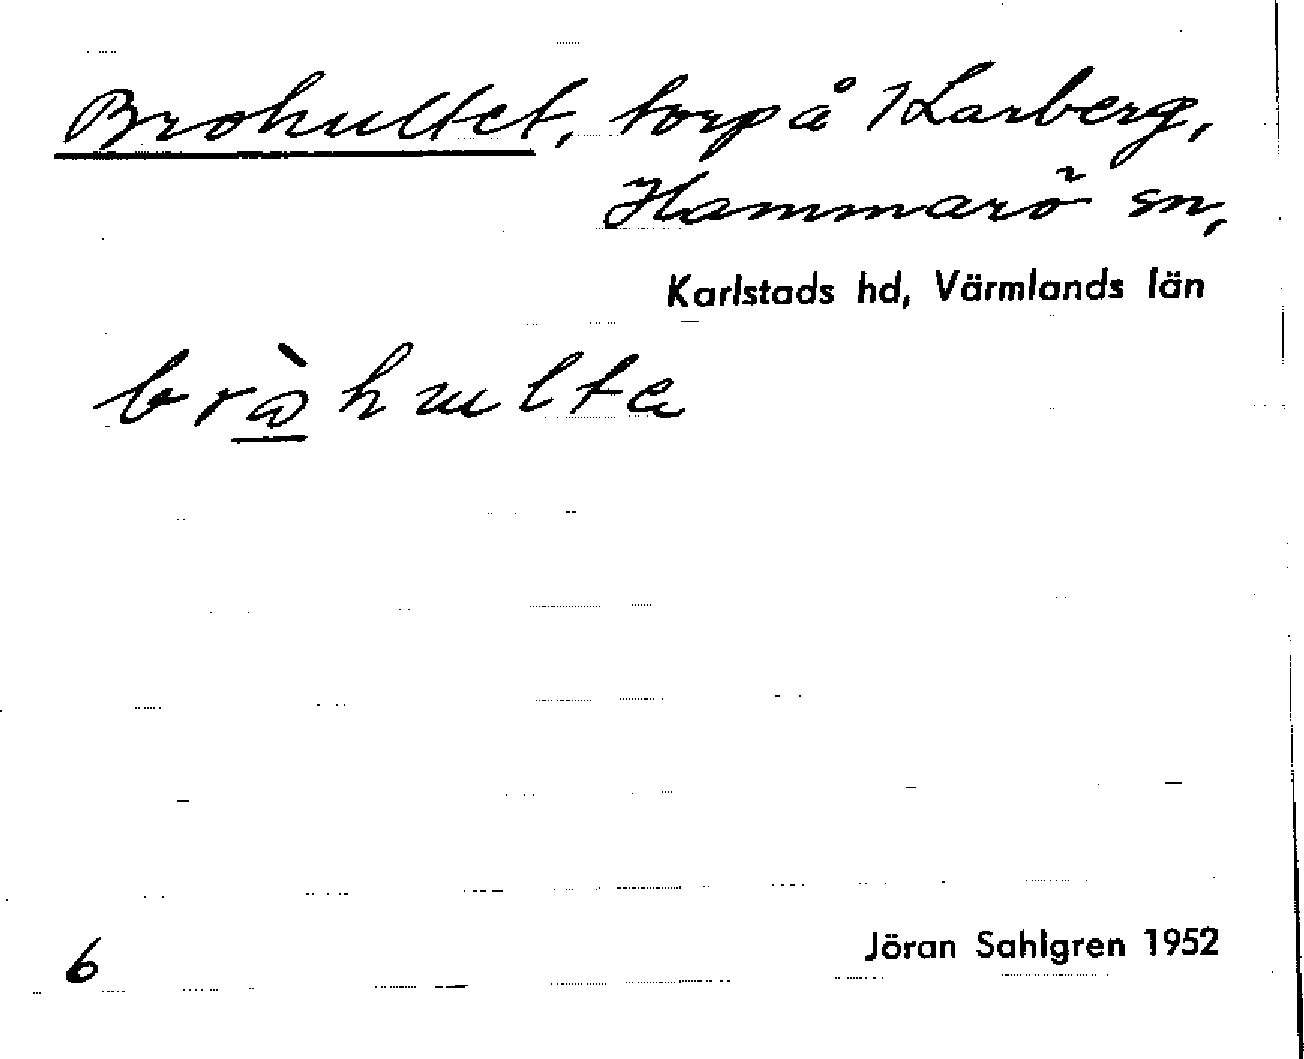 Brohultet, torp å 1 Karberg,
Hammarö sn,
Karlstads hd, Värmlands län
bròhulta
6
Jöran Sahlgren 1952